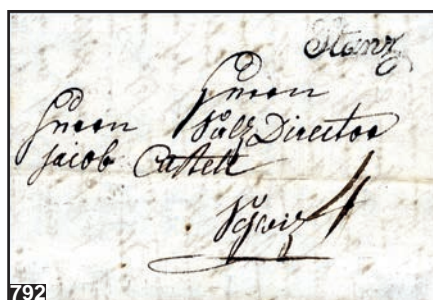 Stanz
Herrn
Herrn Salz Director
Jacob Castell
Schwiz
792